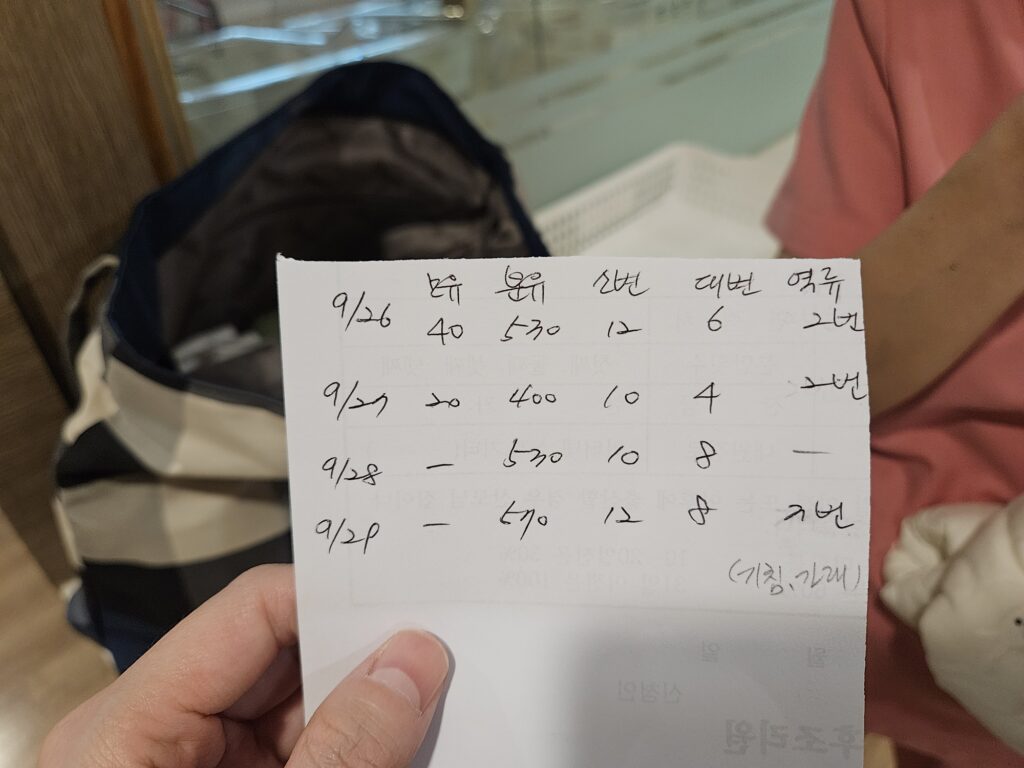 모유 분유 소변 대변 역류
9/26 40 530 12 6 2번
9/27 20 400 10 4 2번
9/28 - 530 10 8 -
9/29 - 570 12 8
(기침, 가래)
신청인
후조리원